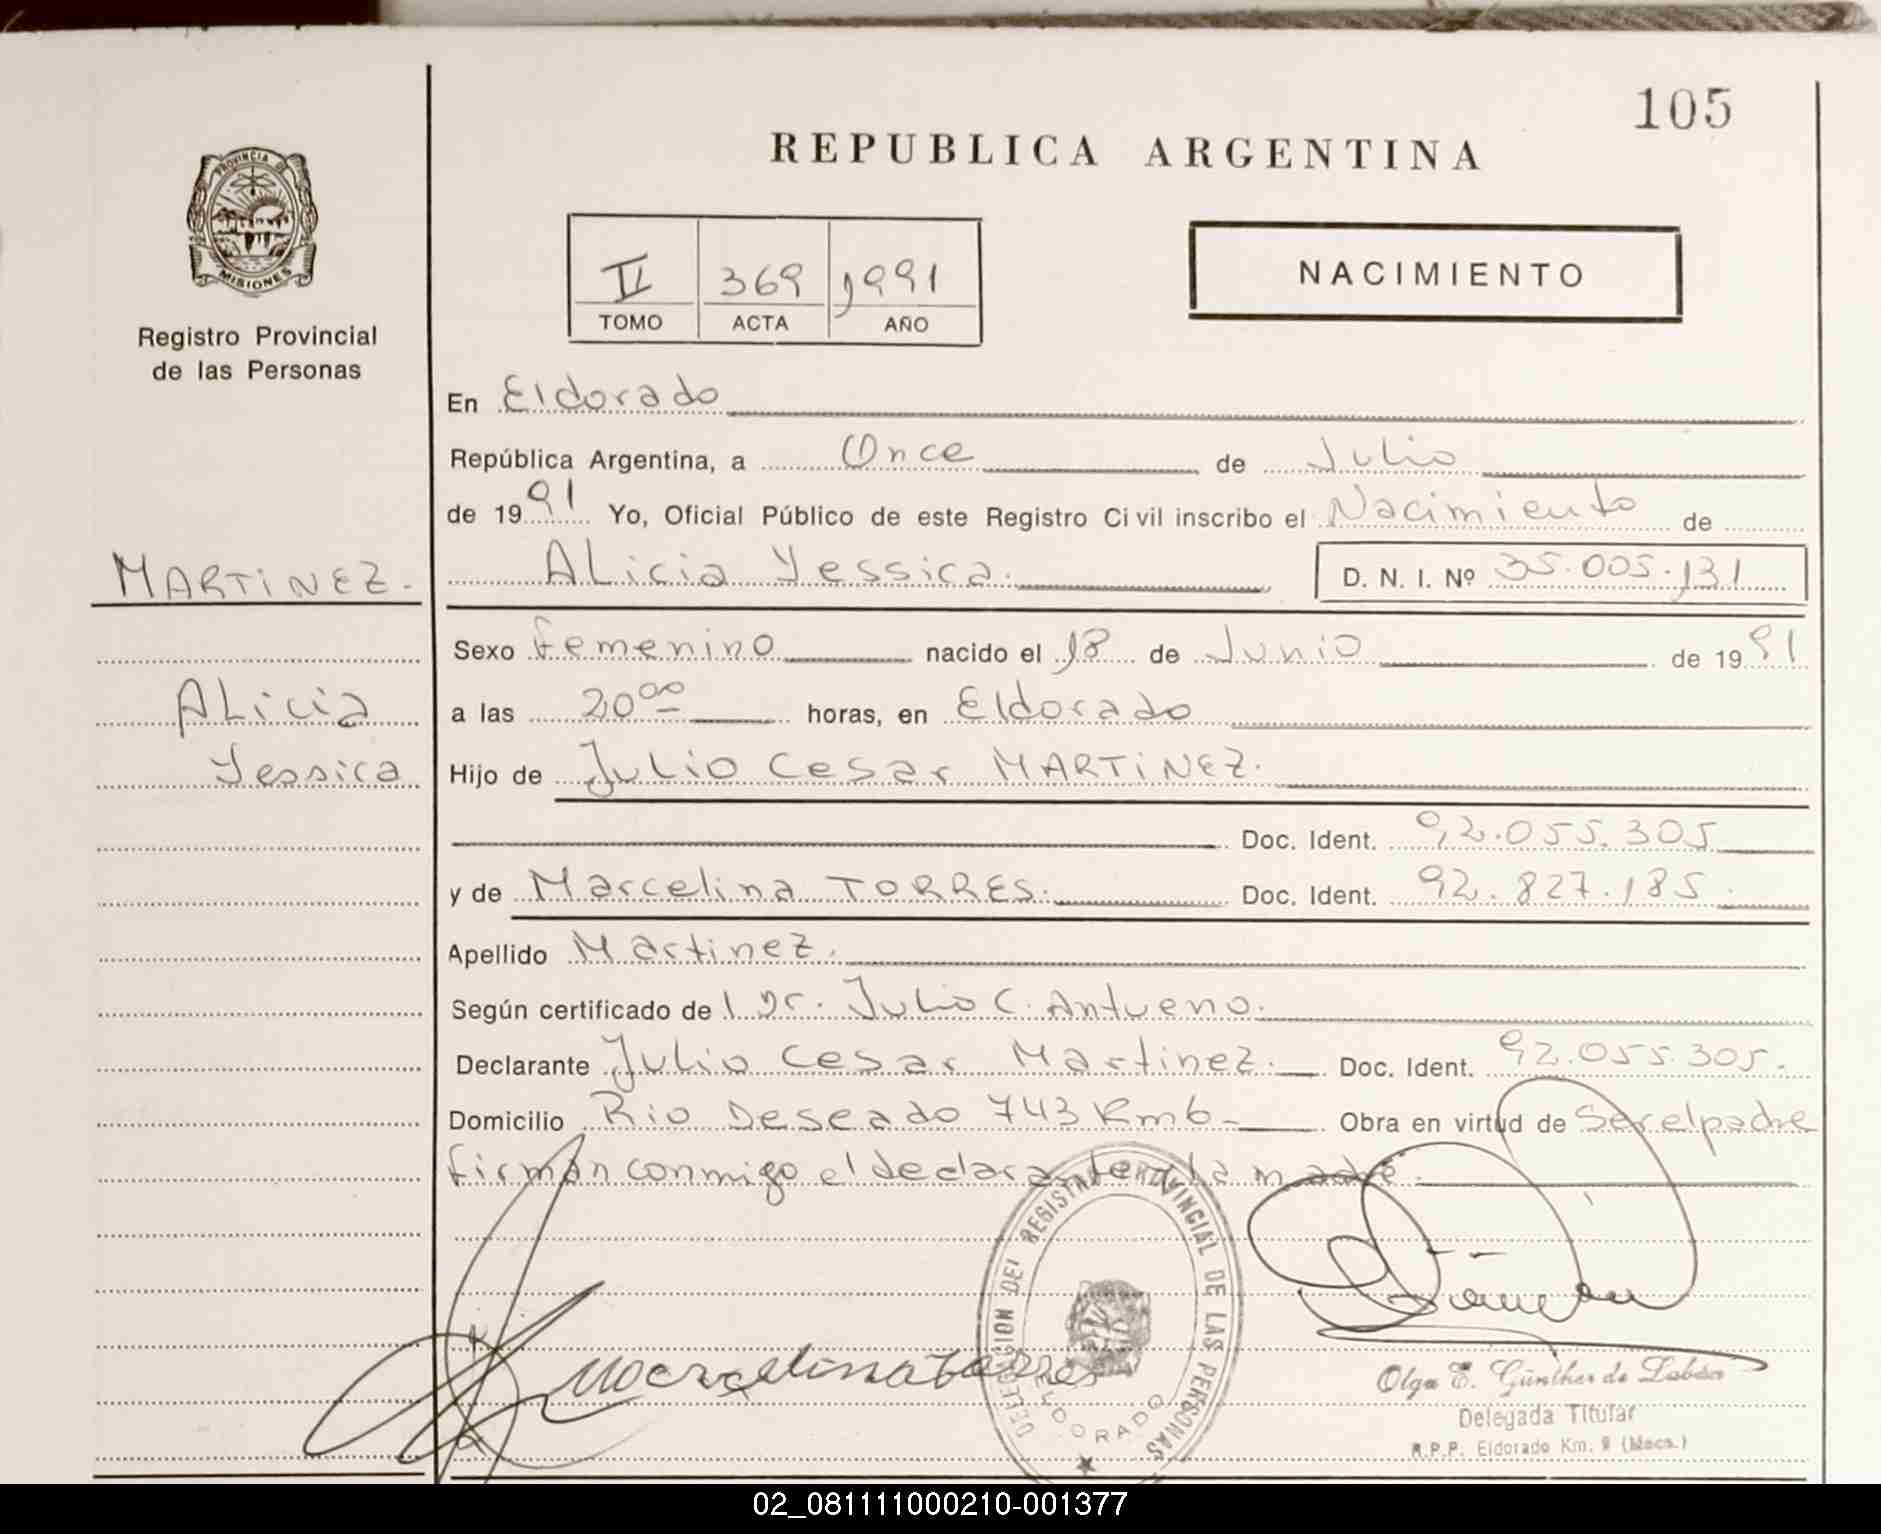 105
REPUBLICA ARGENTINA
PROVINCIA DE
MISIONES
Registro Provincial
de las Personas
II 369 1991
TOMO ACTA AÑO
NACIMIENTO
En Eldorado
República Argentina, a Once de Julio
de 1991 Yo, Oficial Público de este Registro Civil inscribo el Nacimiento de
MARTINEZ.
Alicia Yessica. D. N. I. Nº 35.005.131
Sexo femenino nacido el 18 de Junio de 1991
Alicia
a las 20⁰⁰ horas, en Eldorado
Yessica
Hijo de Julio Cesar MARTINEZ.
Doc. Ident. 92.055.305
y de Marcelina TORRES. Doc. Ident. 92.827.185
Apellido Martinez.
Según certificado del Dr. Julio C. Antueno.
Declarante Julio Cesar Martinez. Doc. Ident. 92.055.305.
Domicilio Rio Deseado 743 Km6 Obra en virtud de ser el padre
firman conmigo el declarante y la madre
DELEGACION DEL REGISTRO PROVINCIAL DE LAS PERSONAS
ELDORADO
Marcelina Torres
Olga E. Günther de
Delegada Titular
R.P.P. Eldorado Km. 9 (Mnes.)
02_081111000210-001377